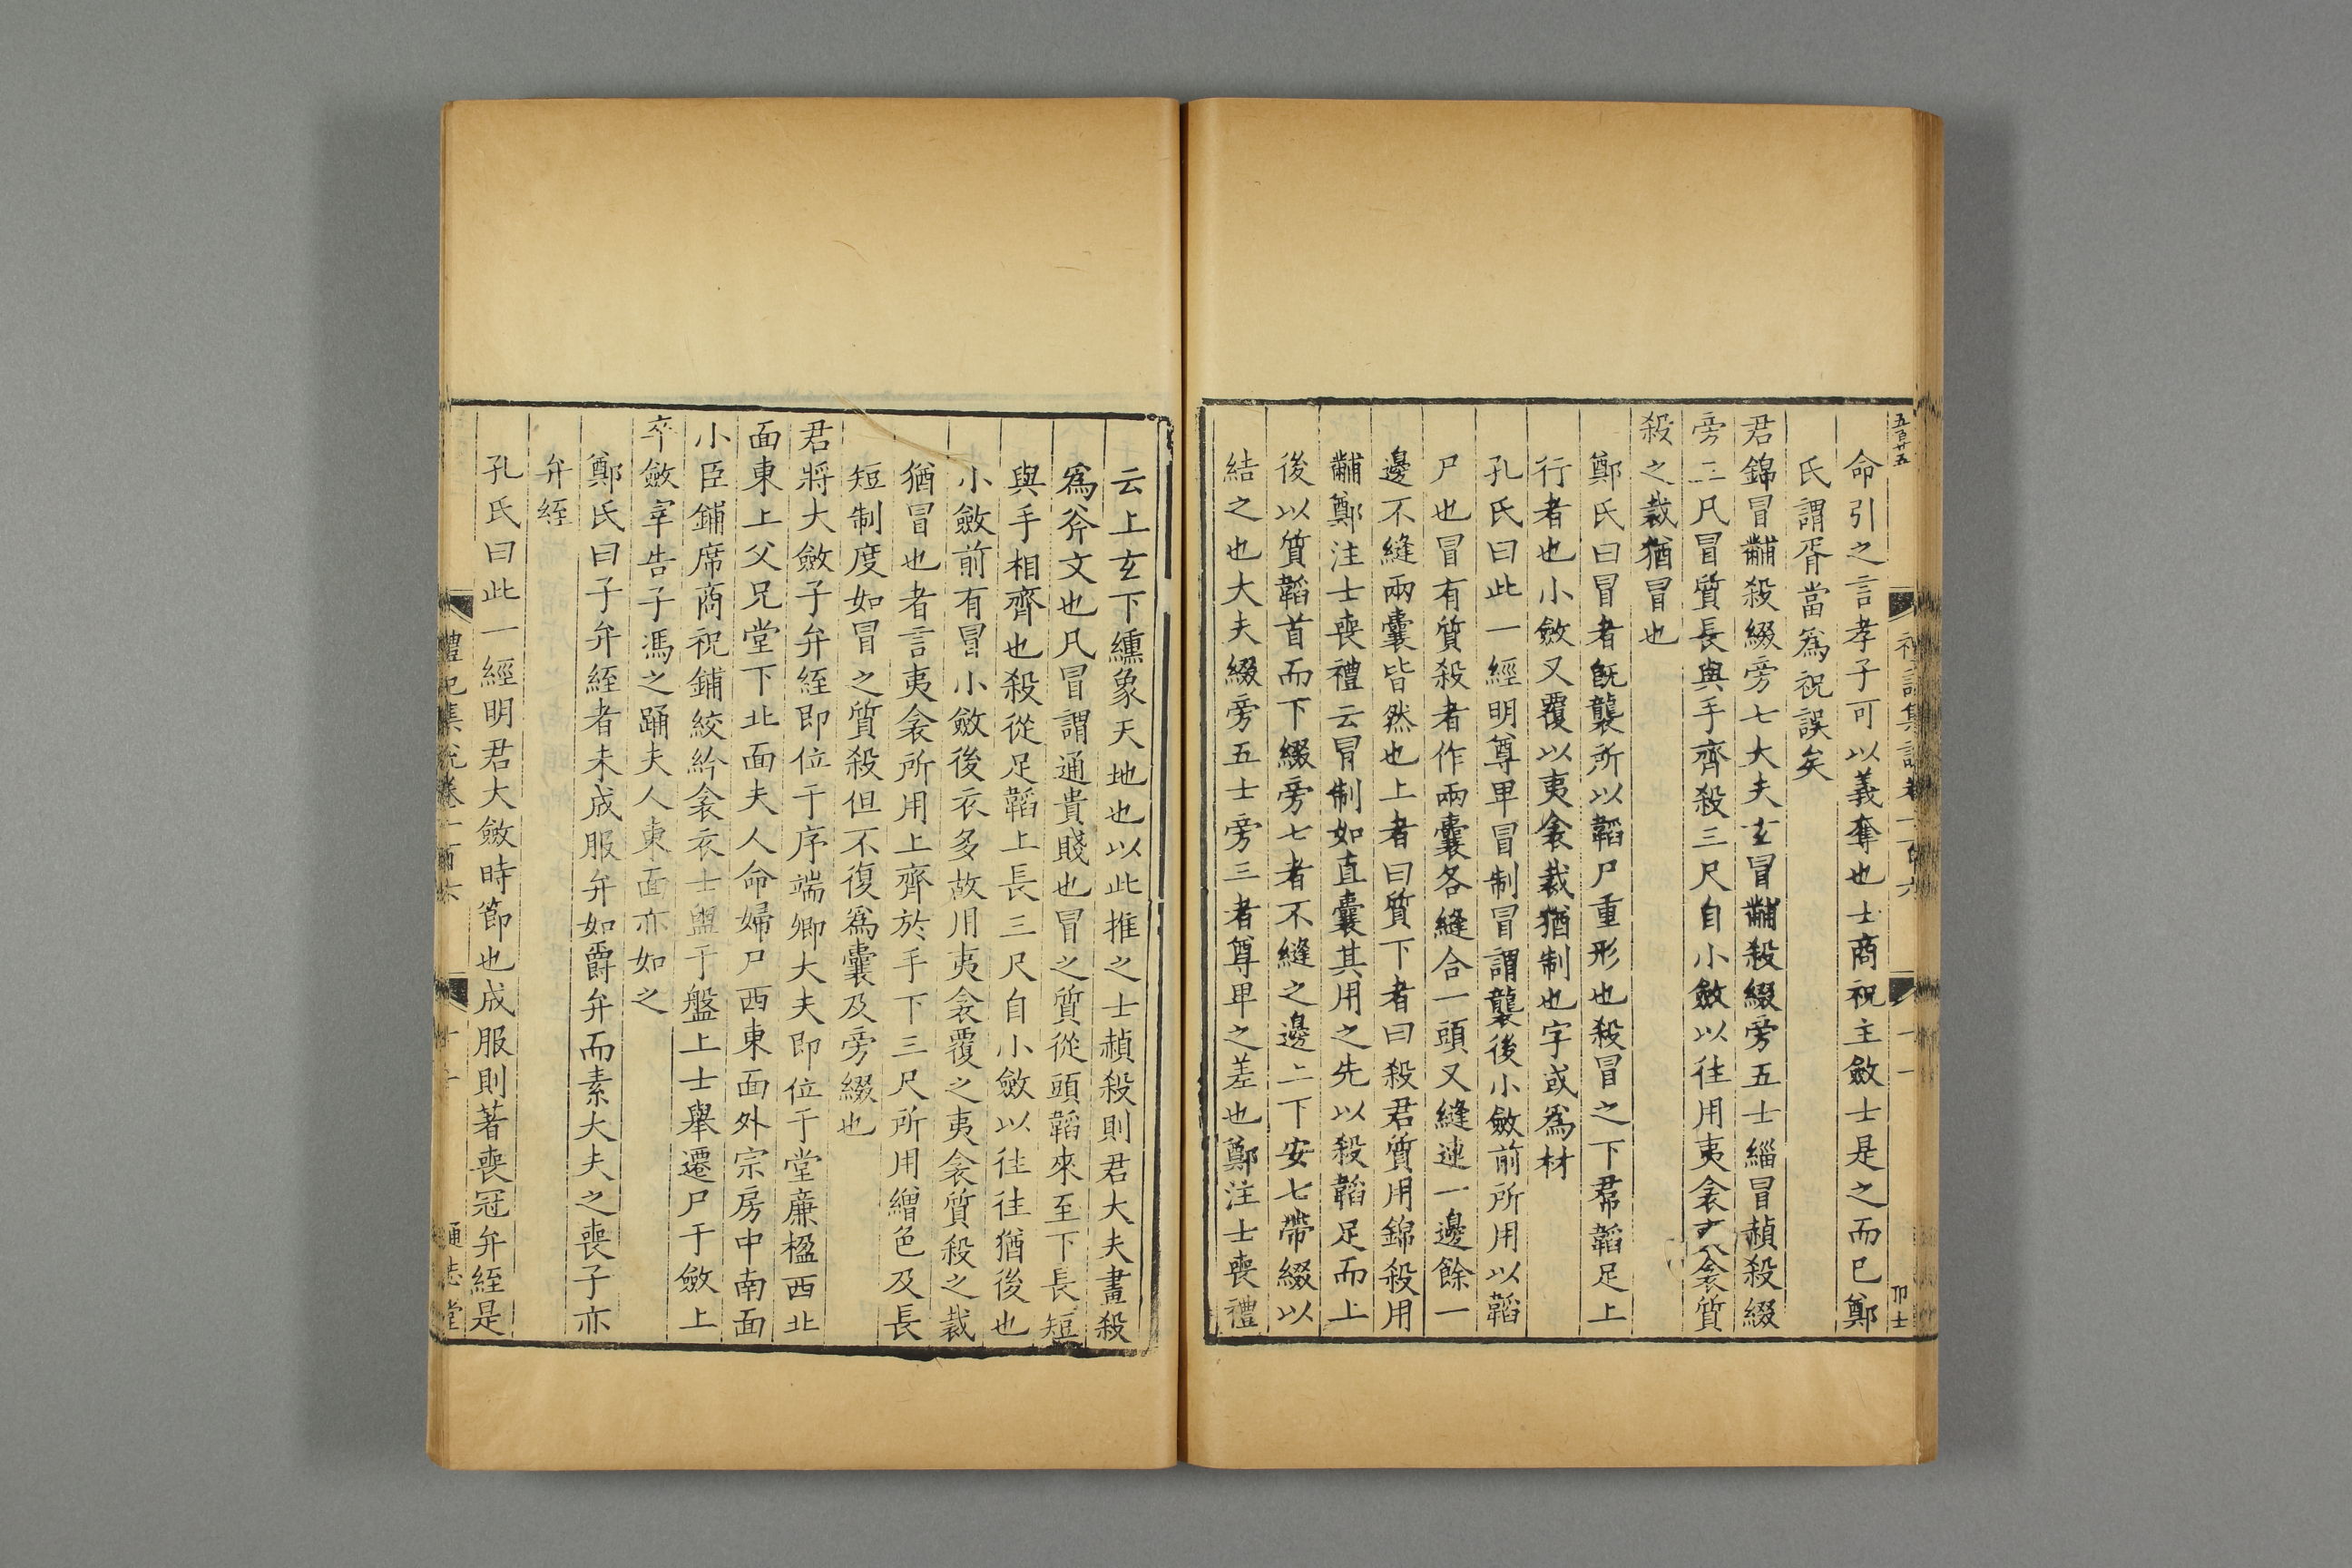 五百廿五
命引之言孝子可以義奪也士商祝主斂士是之而已鄭
氏謂胥當爲祝誤矣
君錦冒黼殺綴旁七大夫玄冒黼殺綴旁五士緇冒赬殺綴
旁三凡冒質長與手齊殺三尺自小斂以往用夷衾夷衾質
殺之裁猶冒也
鄭氏曰冒者旣襲所以韜尸重形也殺冒之下帬韜足上
行者也小斂又覆以夷衾裁猶制也字或爲材
孔氏曰此一經明尊卑冒制冒謂襲後小斂前所用以韜
尸也冒有質殺者作兩囊各縫合一頭又縫連一邊餘一
邊不縫兩囊皆然也上者曰質下者曰殺君質用錦殺用
黼鄭注士喪禮云冒制如直囊其用之先以殺韜足而上
後以質韜首而下綴旁七者不縫之邊上下安七帶綴以
結之也大夫綴旁五士旁三者尊卑之差也鄭注士喪禮
云上玄下纁象天地也以此推之士赬殺則君大夫畫殺
爲斧文也凡冒謂通貴賤也冒之質從頭韜來至下長短
與手相齊也殺從足韜上長三尺自小斂以往往猶後也
小斂前有冒小斂後衣多故用夷衾覆之夷衾質殺之裁
猶冒也者言夷衾所用上齊於手下三尺所用繒色及長
短制度如冒之質殺但不復爲囊及旁綴也
君將大斂子弁絰即位于序端卿大夫即位于堂廉楹西北
面東上父兄堂下北面夫人命婦尸西東面外宗房中南面
小臣鋪席商祝鋪絞紟衾衣士盥于盤上士舉遷尸于斂上
卒斂宰告子馮之踊夫人東面亦如之
鄭氏曰子弁絰者未成服弁如爵弁而素大夫之喪子亦
弁絰
孔氏曰此一經明君大斂時節也成服則著喪冠弁絰是
禮記集說卷一百六 十一 通志堂